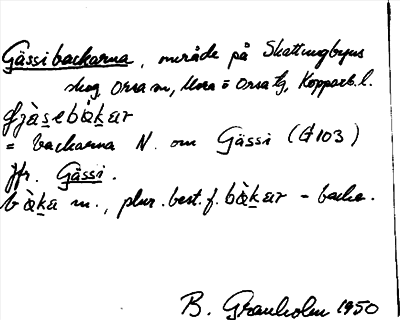 Gässibackarna, område på Skattungbyns
skog, Orsa sn, Mora o Orsa tg, Kopparb. l.
gjàsebàkar
= backarna N. om Gässi (G 103)
Jfr. Gässi.
bàka m., plur. best. f. bàkar - backe.
B. Granholm 1950